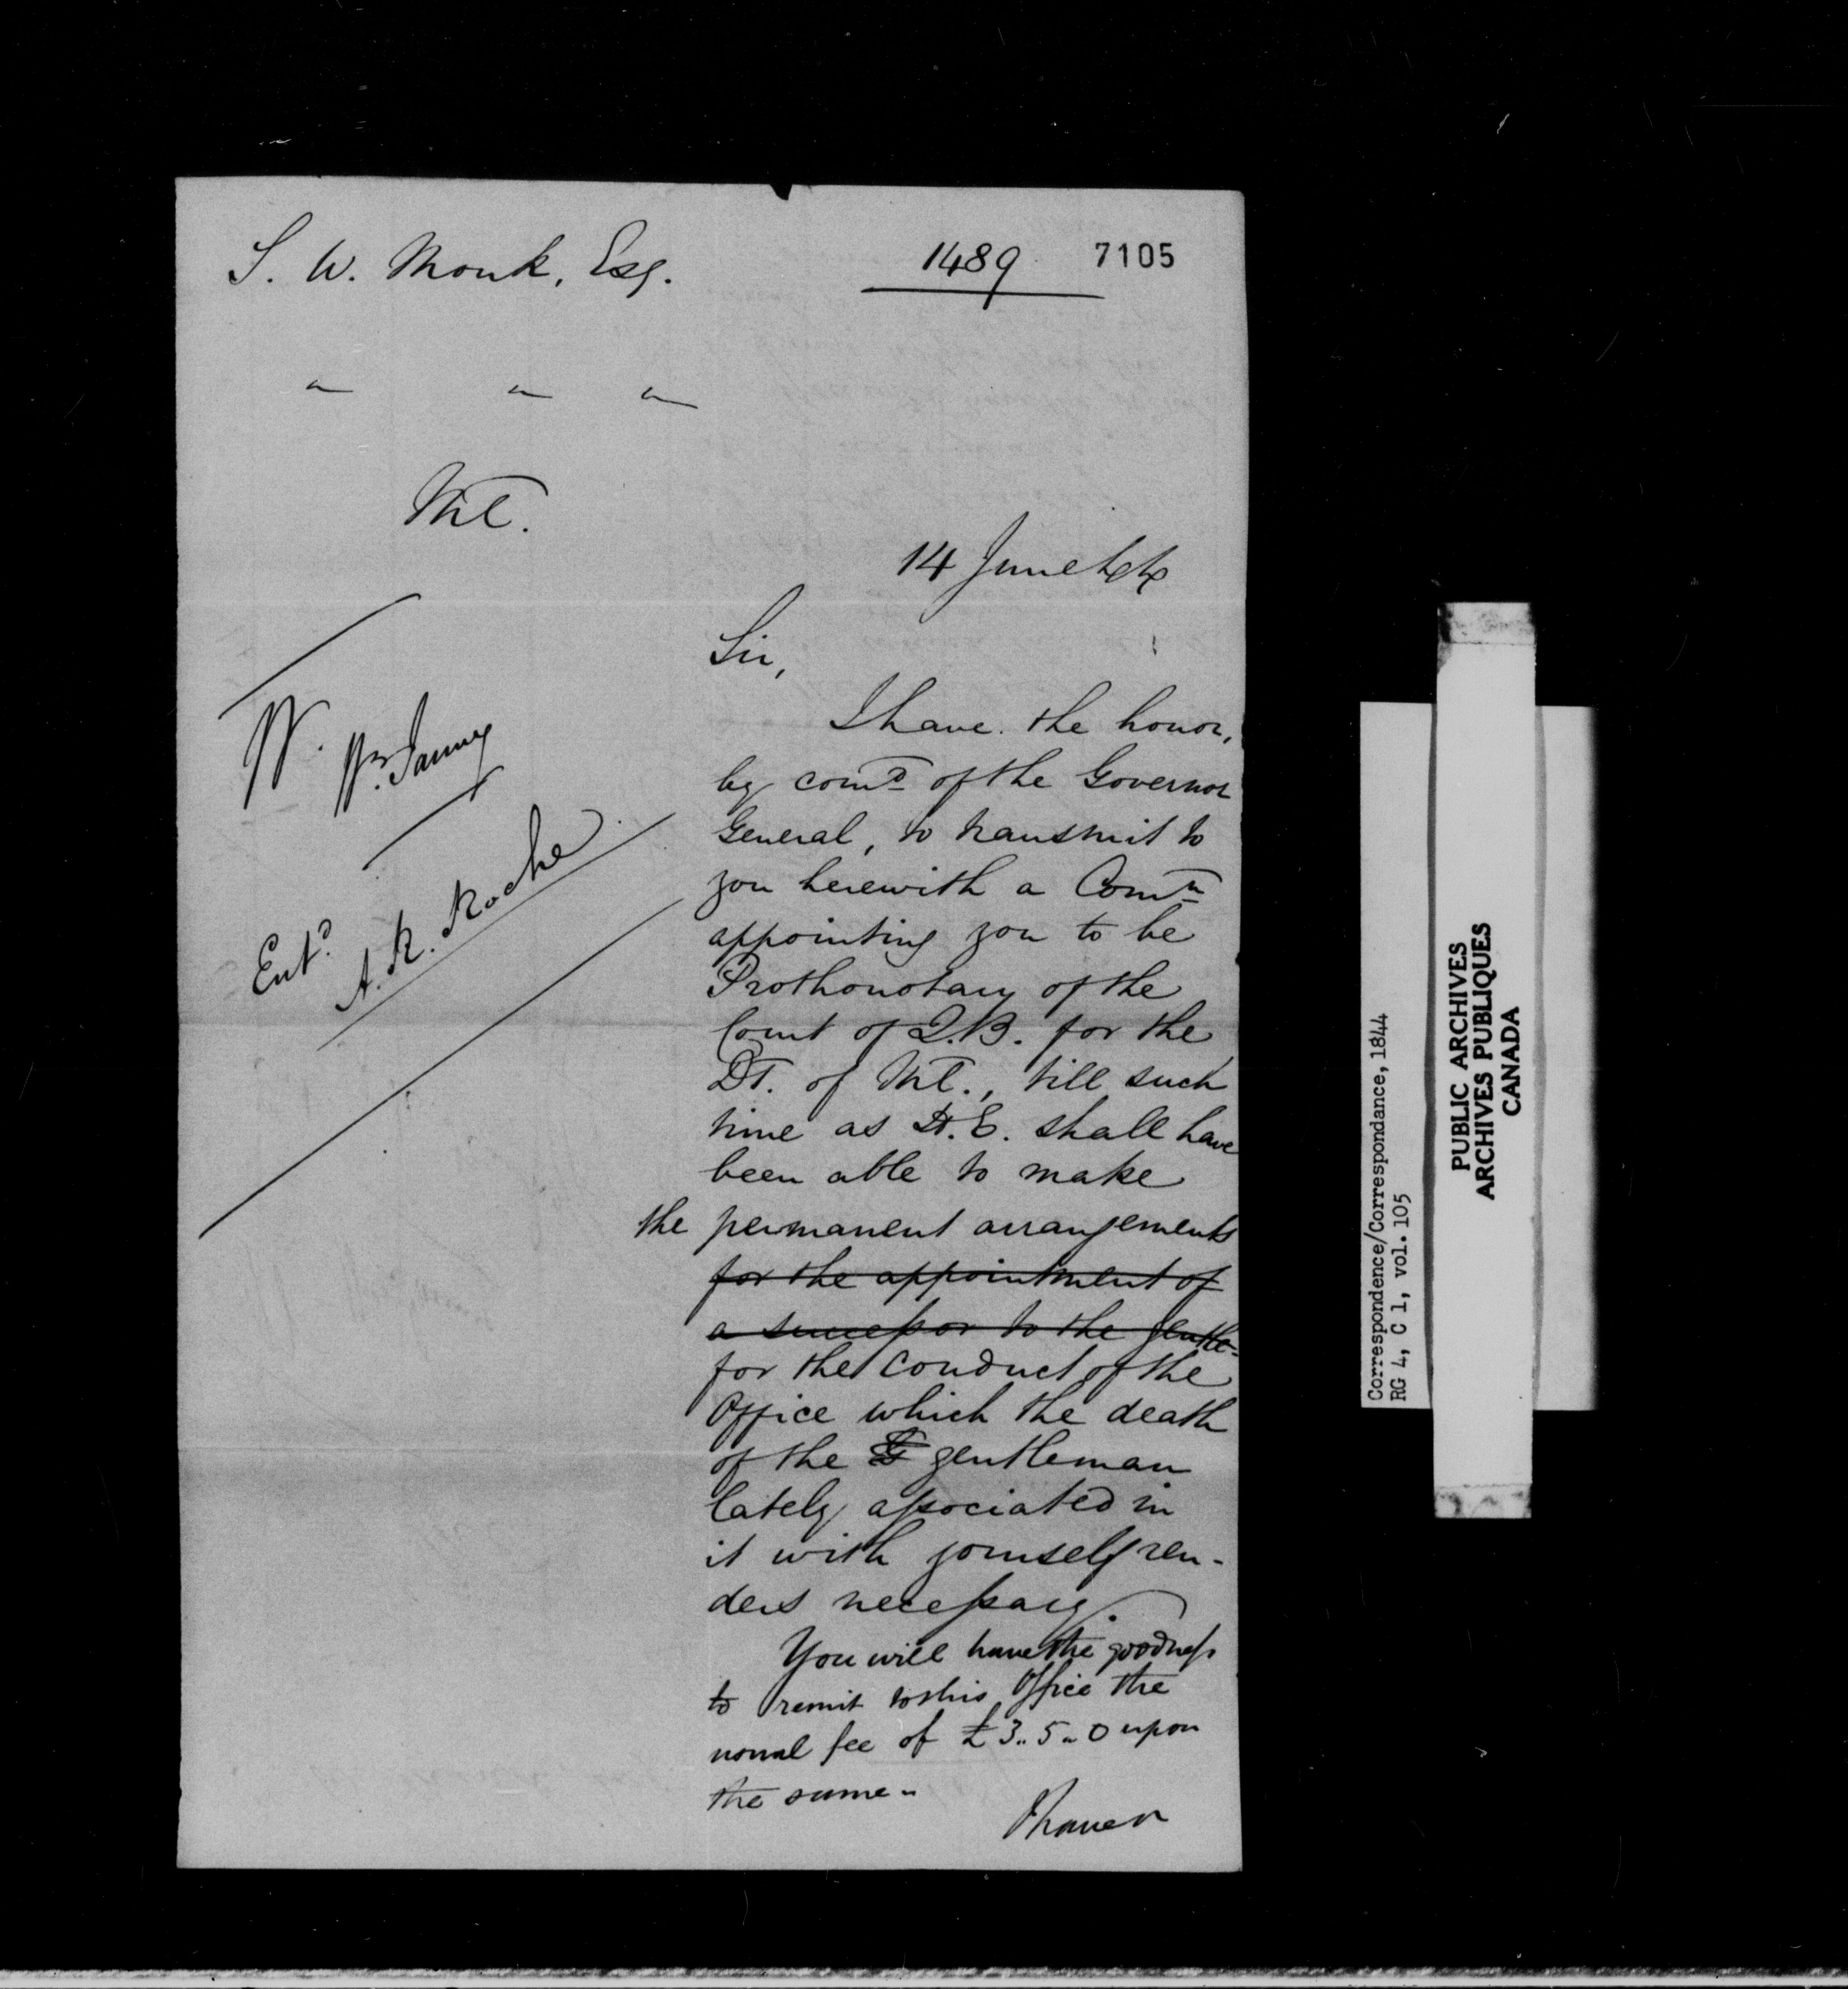 S. W. Monk, Esq.
1489 7105
" " "
Mtl.
14 June 44
Sir,
I have the honor,
by comd of the Governor
General, to transmit to
you herewith a Comn
appointing you to be
Prothonotary of the
Court of Q.B. for the
Dt. of Mtl., till such
time as H.E. shall have
been able to make
the permanent arrangements
for the appointment of
a successor to the gentle-
for the conduct of the
Office which the death
of the G gentleman
lately associated in
it with yourself ren-
ders necessary.
You will have the goodness
to remit to this Office the
usual fee of £3..5..0 upon
the same..
I have
W.
Entd
A. R. Roche
Correspondence/Correspondance, 1844
RG 4, C 1, vol. 105
PUBLIC ARCHIVES
ARCHIVES PUBLIQUES
CANADA